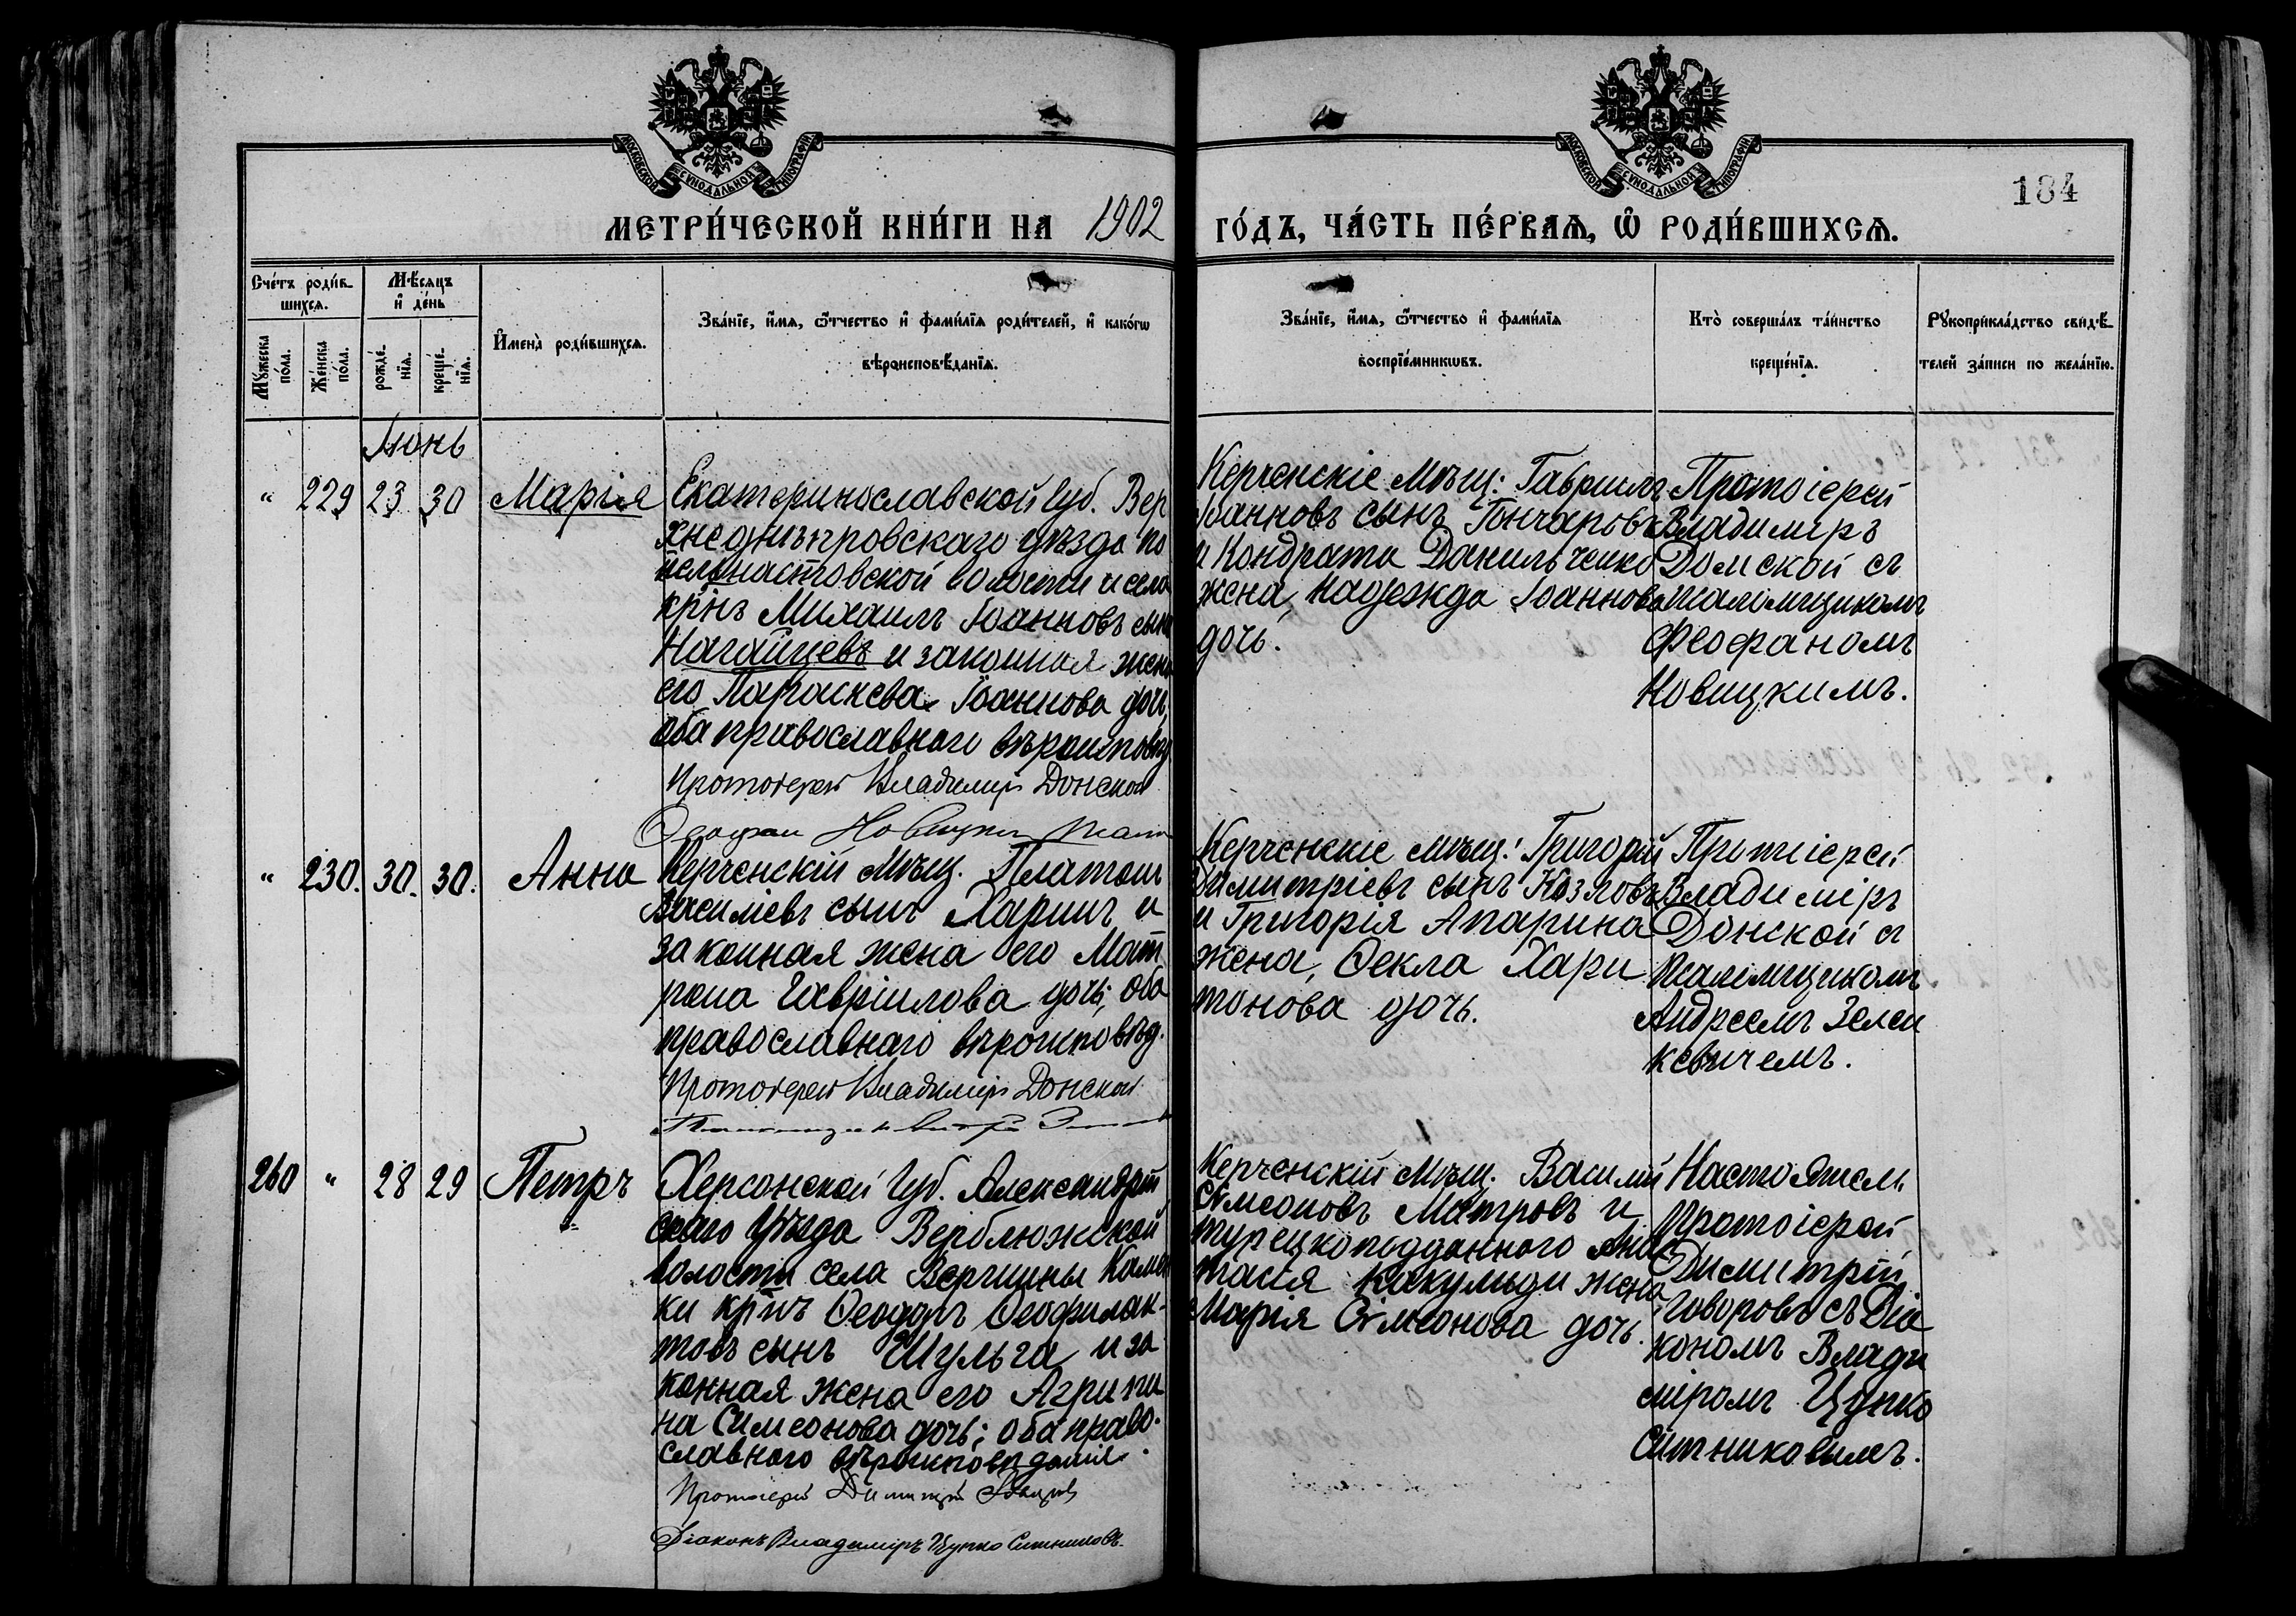 МОСКОВСКОЙ СѴНОДАЛЬНОЙ ТИПОГРАФІИ
МОСКОВСКОЙ СѴНОДАЛЬНОЙ ТИПОГРАФІИ
184
МЕТРИ́ЧЕСКОЙ КНИ́ГИ НА 1902
ГО́ДЪ, ЧА́СТЬ ПЕ́РВАѦ, Ѽ РОДИ́ВШИХСѦ.
Сче́тъ роди́в-
шихсѧ.
Мѣ́сѧцъ
и҆ де́нь
Мꙋ́жеска
по́ла.
Же́нска
по́ла.
рожде́-
нїѧ.
креще́-
нїѧ.
И҆мена̀ роди́вшихсѧ.
Зва́нїе, и҆́мѧ, ѻ҆́тчество и҆ фами́лїѧ роди́телей, и҆ како́гѡ
вѣроисповѣ́данїѧ.
Зва́нїе, и҆́мѧ, ѻ҆́тчество и҆ фами́лїѧ
воспрїе́мникѡвъ.
Кто̀ соверша́лъ та́инство
креще́нїѧ.
Рꙋкоприкла́дство свидѣ́-
телей за́писи по жела́нїю.
Іюнь
" 229 23 30 Марія
Екатеринославской Губ. Вер
хнеднѣпровскаго уѣзда
волости села
кр҃нъ Михаилъ Іоанновъ сынъ
Нагайцевъ и законная жена
его Параскева Іоаннова дочь,
оба православнаго вѣроисповѣд
Протоіерей Владиміръ Донской
Ѳеофан Новицкій
Керченскіе Мѣщ: Гавріилъ
Іоанновъ сынъ Гончаровъ
и Кондрата Данильченко
жена, Надежда Іоаннова
дочь.
Протоіерей
Владиміръ
Донской съ
псаломщикомъ
Феофаномъ
Новицкимъ.
" 230. 30. 30. Анна
Керченскій Мѣщ. Платонъ
Василіевъ сынъ Харинъ и
законная жена его Мат
рона Гавріилова дочь; оба
православнаго вѣроисповѣд.
Протоіерей Владиміръ Донской
Керченскіе мѣщ: Григорій
Димитріевъ сынъ Козловъ
и Григорія Апарина
жена, Ѳекла Хари
тонова дочь.
Протоіерей
Владиміръ
Донской съ
псаломщикомъ
Андреемъ Зелен
кевичемъ.
260 " 28 29 Петръ
Херсонской Губ. Александрій
скаго Уѣзда Верблюжской
волости села Вершины Камен
ки кр҃нъ Ѳеодоръ Ѳеофилак-
товъ сынъ Шульга и за
конная жена его Агрипи
на Симеонова дочь; оба право-
славного вѣроисповѣданія.
Протоіерей Димитрій Говоровъ
Діаконъ Владиміръ Цупко Ситниковъ.
Керченскій Мѣщ. Василій
Сѵмеоновъ Матровъ и
турецкоподданного Анас
тасія Какулиди жена
Марія Сѵмеонова дочь.
Настоятель
протоіерей
Димитрій
Говоровъ съ Діа
кономъ Влади
міромъ Цупко
Ситниковымъ.